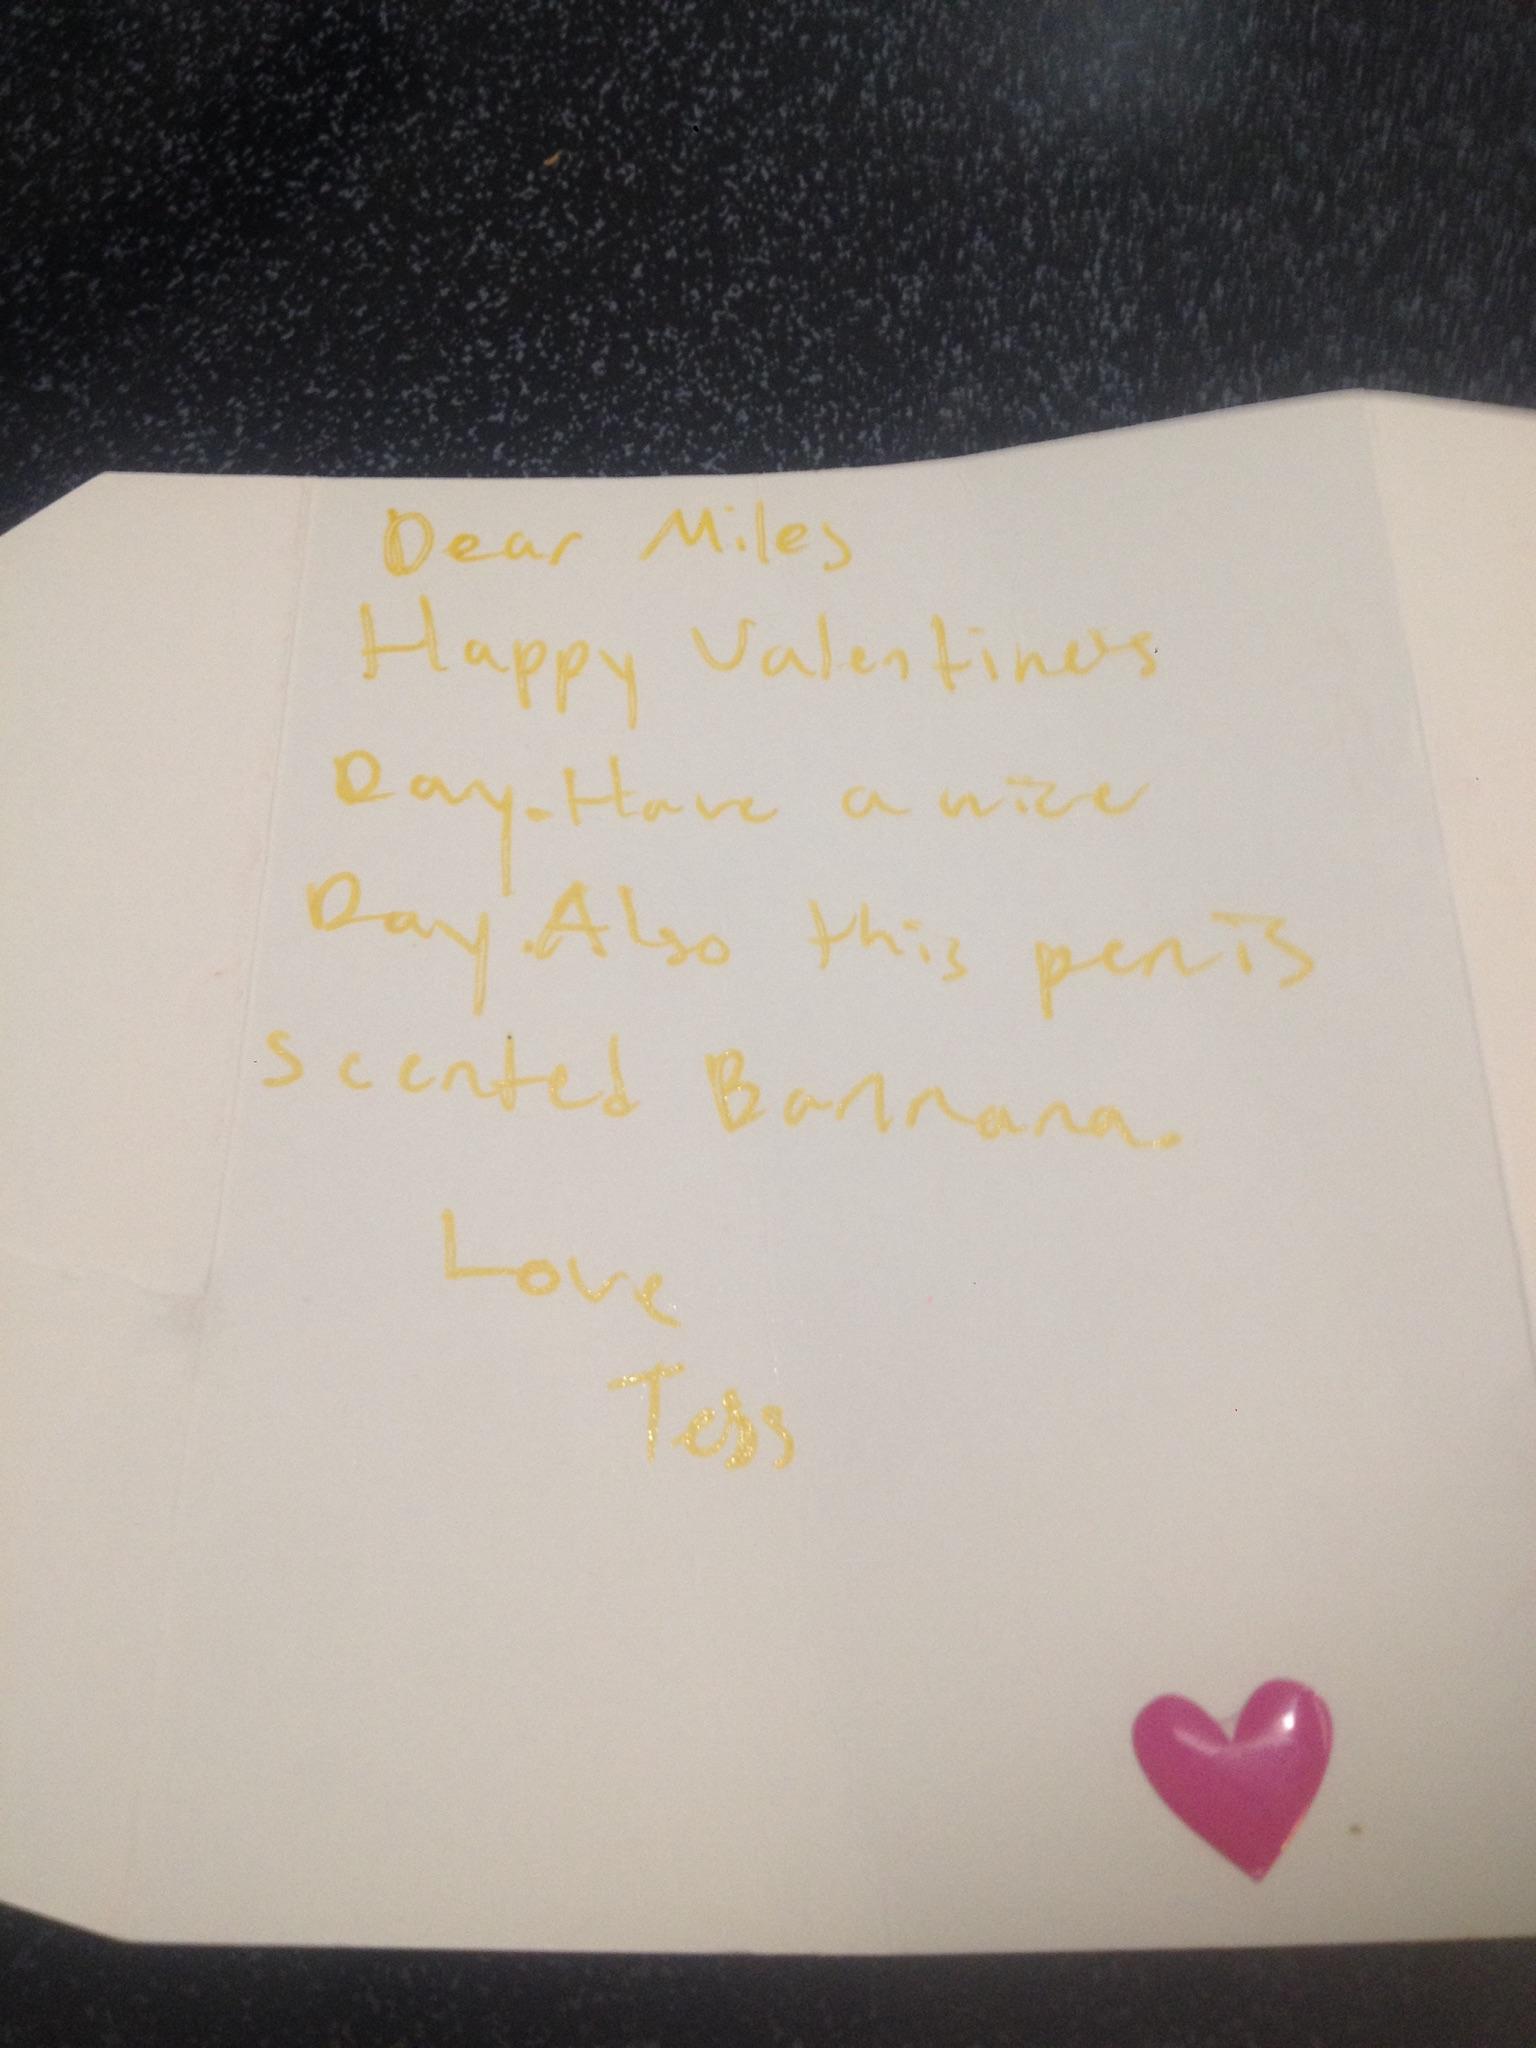 Dear Miles
Happy Valentine's
Day. Have a nice
Day. Also this penis
scented Bannana.
Love
Tess